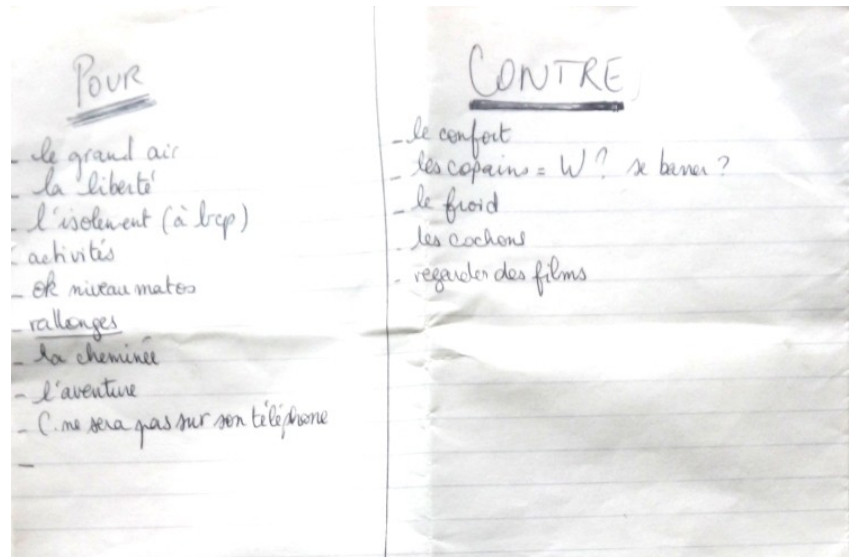 POUR
- le grand air
- la liberté
- l'isolement (à bcp)
- activités
- ok niveau matos
- rallonges
- la cheminée
- l'aventure
- C. ne sera pas sur son téléphone
-
CONTRE
- le confort
- les copains = W ? se barrer ?
- le froid
- les cochons
- regarder des films